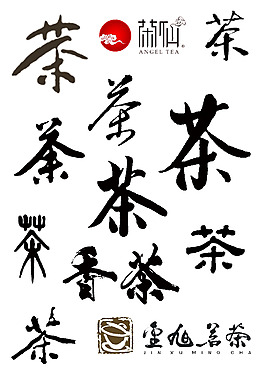 茶
茶仙®
ANGEL TEA
茶
茶
茶
茶
茶
茶
茶
香茶
茶
金旭茗茶
JIN XU MING CHA